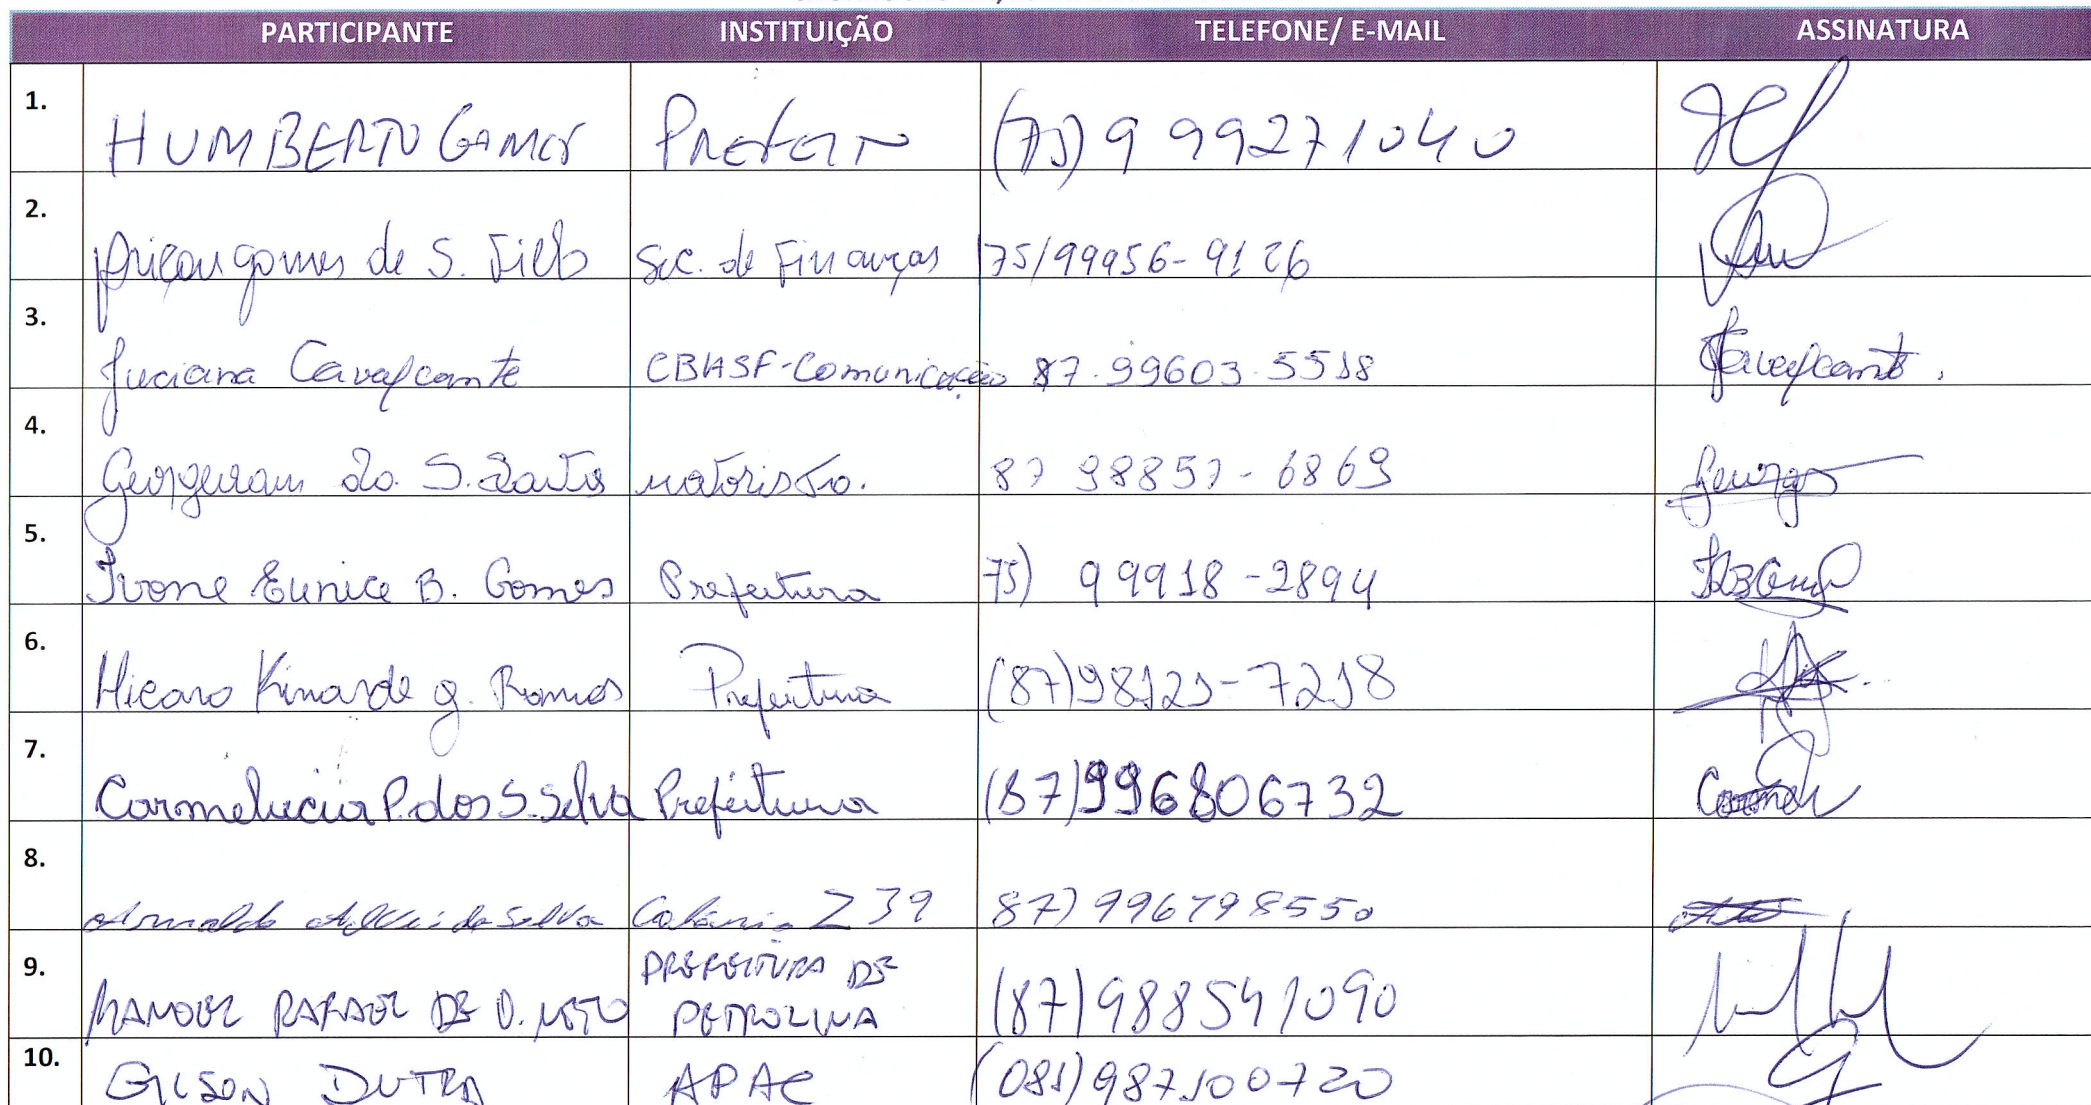 PARTICIPANTE INSTITUIÇÃO TELEFONE/ E-MAIL ASSINATURA
1. HUMBERTO GOMES PREFEITO (75) 9 99271040
2. gomes de S. Filho Sec. de Finanças 75/99956-9126
3. Juciana Cavalcante CBHSF-Comunicação 87.99603.5518 Cavalcante.
4. S. Santos motorista. 87 98857-6869 George
5. Ivone Eunice B. Gomes Prefeitura 75) 99918-2894
6. Hicaro Kinarde g. Ramos Prefeitura (87)98121-7218
7. Carmelucia P. dos S. Silva Prefeitura (87)996806732
8. Arnaldo da Silva Colônia Z 39 87) 996798550
9. MANOEL RAFAEL DE O. NETO PREFEITURA DE PETROLINA (87)988541090
10. GILSON DUTRA APAC (081)987100720